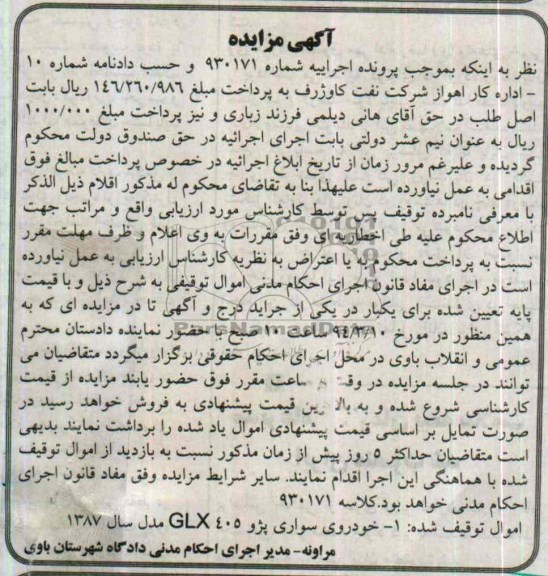 آگهی مزایده
نظر به اینکه بموجب پرونده اجراییه شماره ۹۳۰۱۷۱ و حسب دادنامه شماره ۱۰
- اداره کار اهواز شرکت نفت کاوژرف به پرداخت مبلغ ۱۴۶/۲۶۰/۹۸۶ ریال بابت
اصل طلب در حق آقای هانی دیلمی فرزند زباری و نیز پرداخت مبلغ ۱۰۰۰/۰۰۰
ریال به عنوان نیم عشر دولتی بابت اجرای اجرائیه در حق صندوق دولت محکوم
گردیده و علیرغم مرور زمان از تاریخ ابلاغ اجرائیه در خصوص پرداخت مبالغ فوق
اقدامی به عمل نیاورده است علیهذا بنا به تقاضای محکوم له مذکور اقلام ذیل الذکر
با معرفی نامبرده توقیف پس توسط کارشناس مورد ارزیابی واقع و مراتب جهت
اطلاع محکوم علیه طی اخطاریه ای وفق مقررات به وی اعلام و ظرف مهلت مقرر
نسبت به پرداخت محکوم به یا اعتراض به نظریه کارشناس ارزیابی به عمل نیاورده
است در اجرای مفاد قانون اجرای احکام مدنی اموال توقیفی به شرح ذیل و با قیمت
پایه تعیین شده برای یکبار در یکی از جراید درج و آگهی تا در مزایده ای که به
همین منظور در مورخ ۹۴/۳/۱۰ ساعت ۱۰ صبح با حضور نماینده دادستان محترم
عمومی و انقلاب باوی در محل اجرای احکام حقوقی برگزار میگردد متقاضیان می
توانند در جلسه مزایده در وقت و ساعت مقرر فوق حضور یابند مزایده از قیمت
کارشناسی شروع شده و به بالاترین قیمت پیشنهادی به فروش خواهد رسید در
صورت تمایل بر اساسی قیمت پیشنهادی اموال یاد شده را برداشت نمایند بدیهی
است متقاضیان حداکثر ۵ روز پیش از زمان مذکور نسبت به بازدید از اموال توقیف
شده با هماهنگی این اجرا اقدام نمایند. سایر شرایط مزایده وفق مفاد قانون اجرای
احکام مدنی خواهد بود.کلاسه ۹۳۰۱۷۱
اموال توقیف شده: ۱- خودروی سواری پژو ۴۰۵ GLX مدل سال ۱۳۸۷
مراونه- مدیر اجرای احکام مدنی دادگاه شهرستان باوی